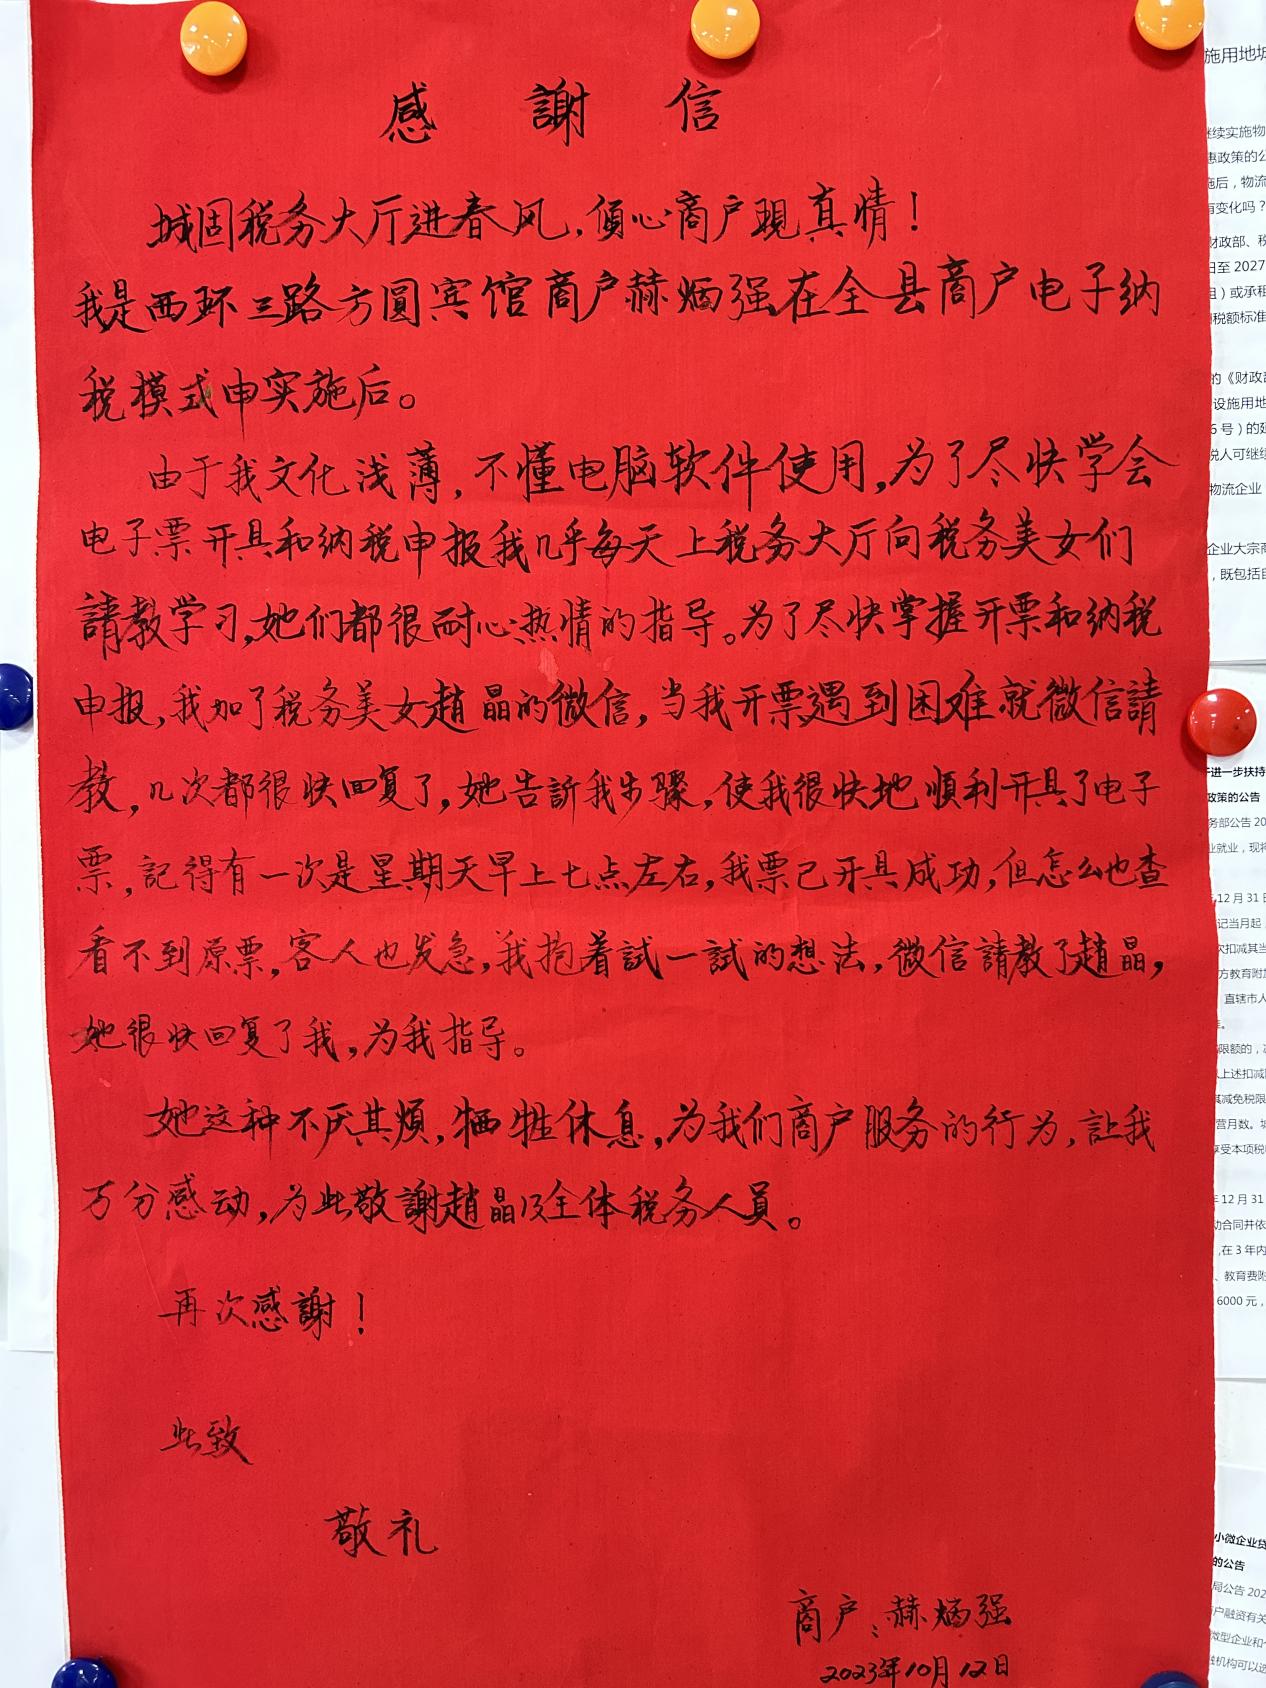 感謝信
城固税务大厅进春风,傾心商户現真情!
我是西环三路方圆宾馆商户赫炳强在全县商户电子纳
税模式申实施后。
由于我文化浅薄,不懂电脑软件使用,为了尽快学会
电子票开具和纳税申报我几乎每天上税务大厅向税务美女们
請教学习,她们都很耐心热情的指导。为了尽快掌握开票和纳税
申报,我加了税务美女趙晶的微信,当我开票遇到困难就微信請
教,几次都很快回复了,她告訴我步骤,使我很快地順利开具了电子
票,記得有一次是星期天早上七点左右,我票已开具成功,但怎么也查
看不到原票,客人也发急,我抱着試一試的想法,微信請教了趙晶,
她很快回复了我,为我指导。
她这种不厌其煩,牺牲休息,为我们商户服务的行为,讓我
万分感动,为此敬謝趙晶及全体税务人員。
再次感謝!
此致
敬礼
商户:赫炳强
2023年10月12日
施用地城
继续实施物
惠政策的公
施后,物流
有变化吗?
财政部、税
日至2027
组)或承租
税额标准
的《财政部
设施用地
6号)的建
税人可继续
物流企业
企业大宗商
,既包括自
进一步扶持
政策的公告
务部公告20
业就业,现将
12月31日
记当月起
次扣减其当
方教育附加
直辖市人
限额的,
以上述扣减
其减免税限
营月数。城
享受本项税
12月31
动合同并依
,在3年内
、教育费附
6000元,
小微企业贷
的公告
局公告202
户融资有关
微型企业和个
融机构可以选